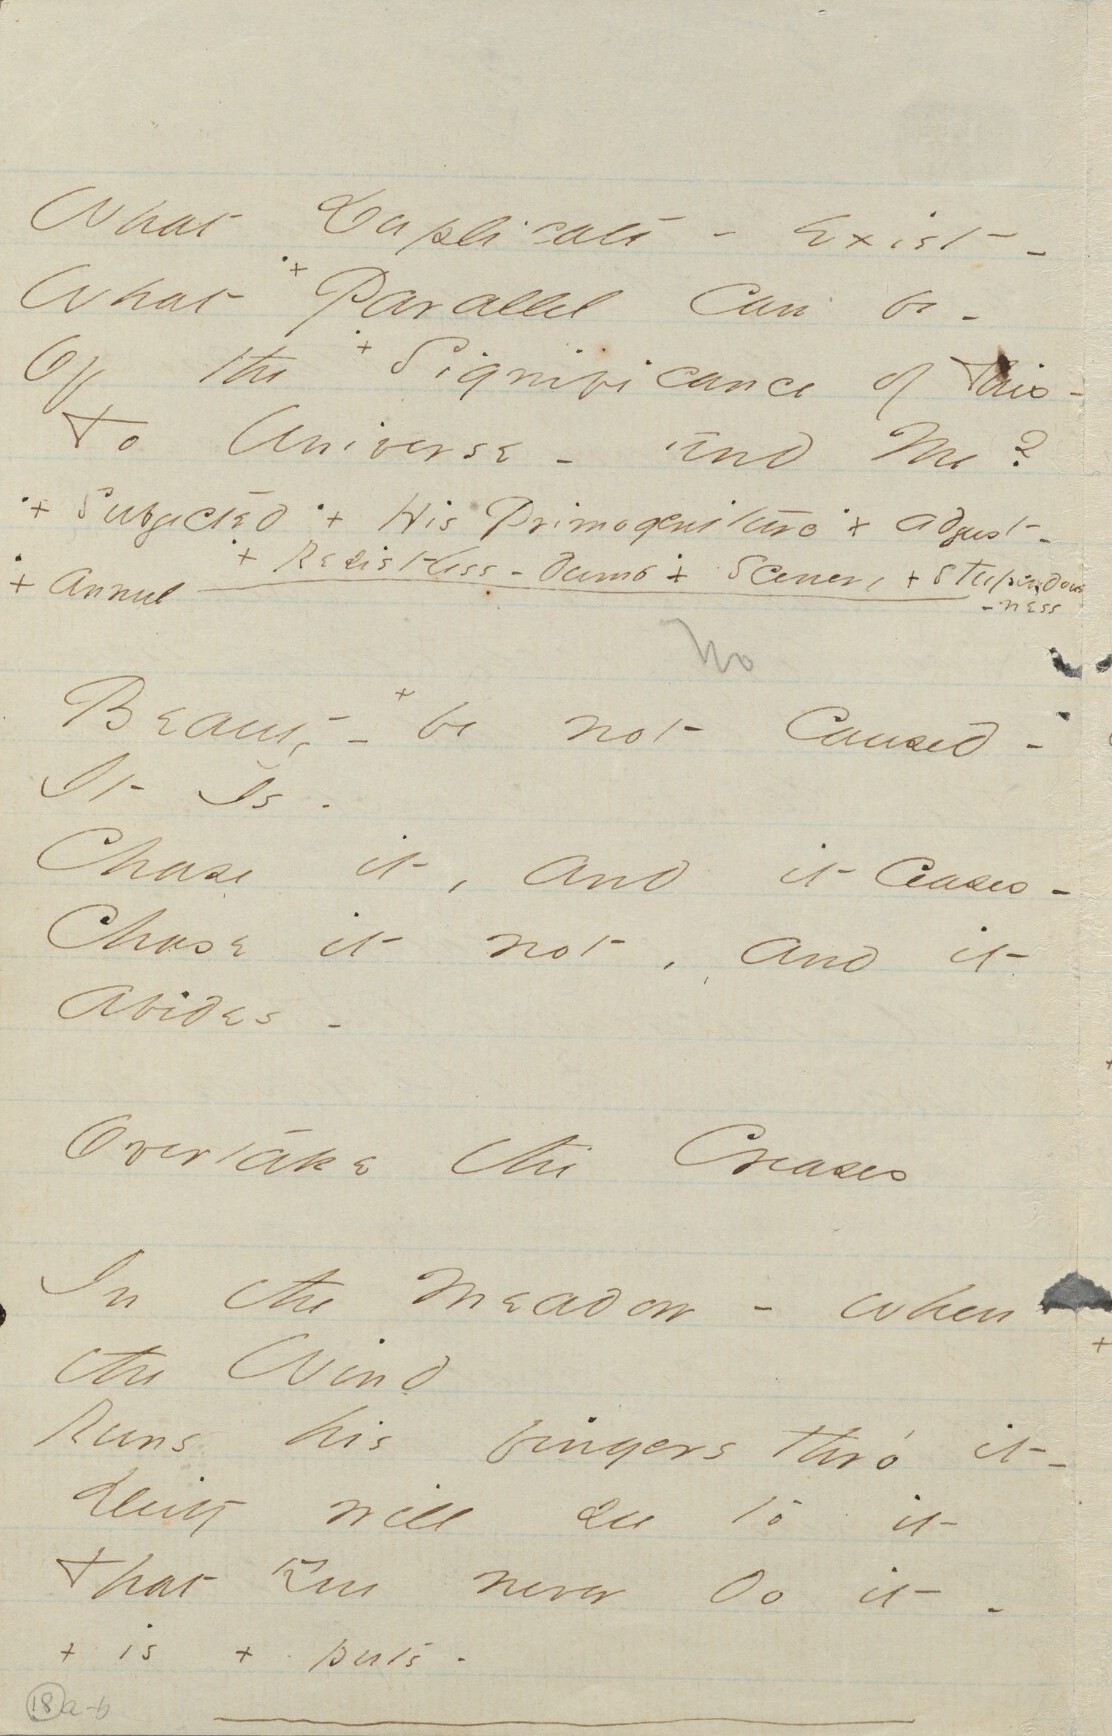 What Duplicate - exist -
What + Parallel can be -
Of the + Significance of This -
To Universe - and Me?
+ Subjected + His Primogeniture + adjust -
+ Resistless - dumb + Scenery + Stupendous
-ness
+ Annul
No
Beauty - + be not caused -
It Is -
Chase it, and it ceases -
Chase it not, and it
abides -
Overtake the Creases
In the Meadow - when
the Wind
Runs his fingers thro' it -
Deity will see to it
That You never do it -
+ is + puts -
18 a-b